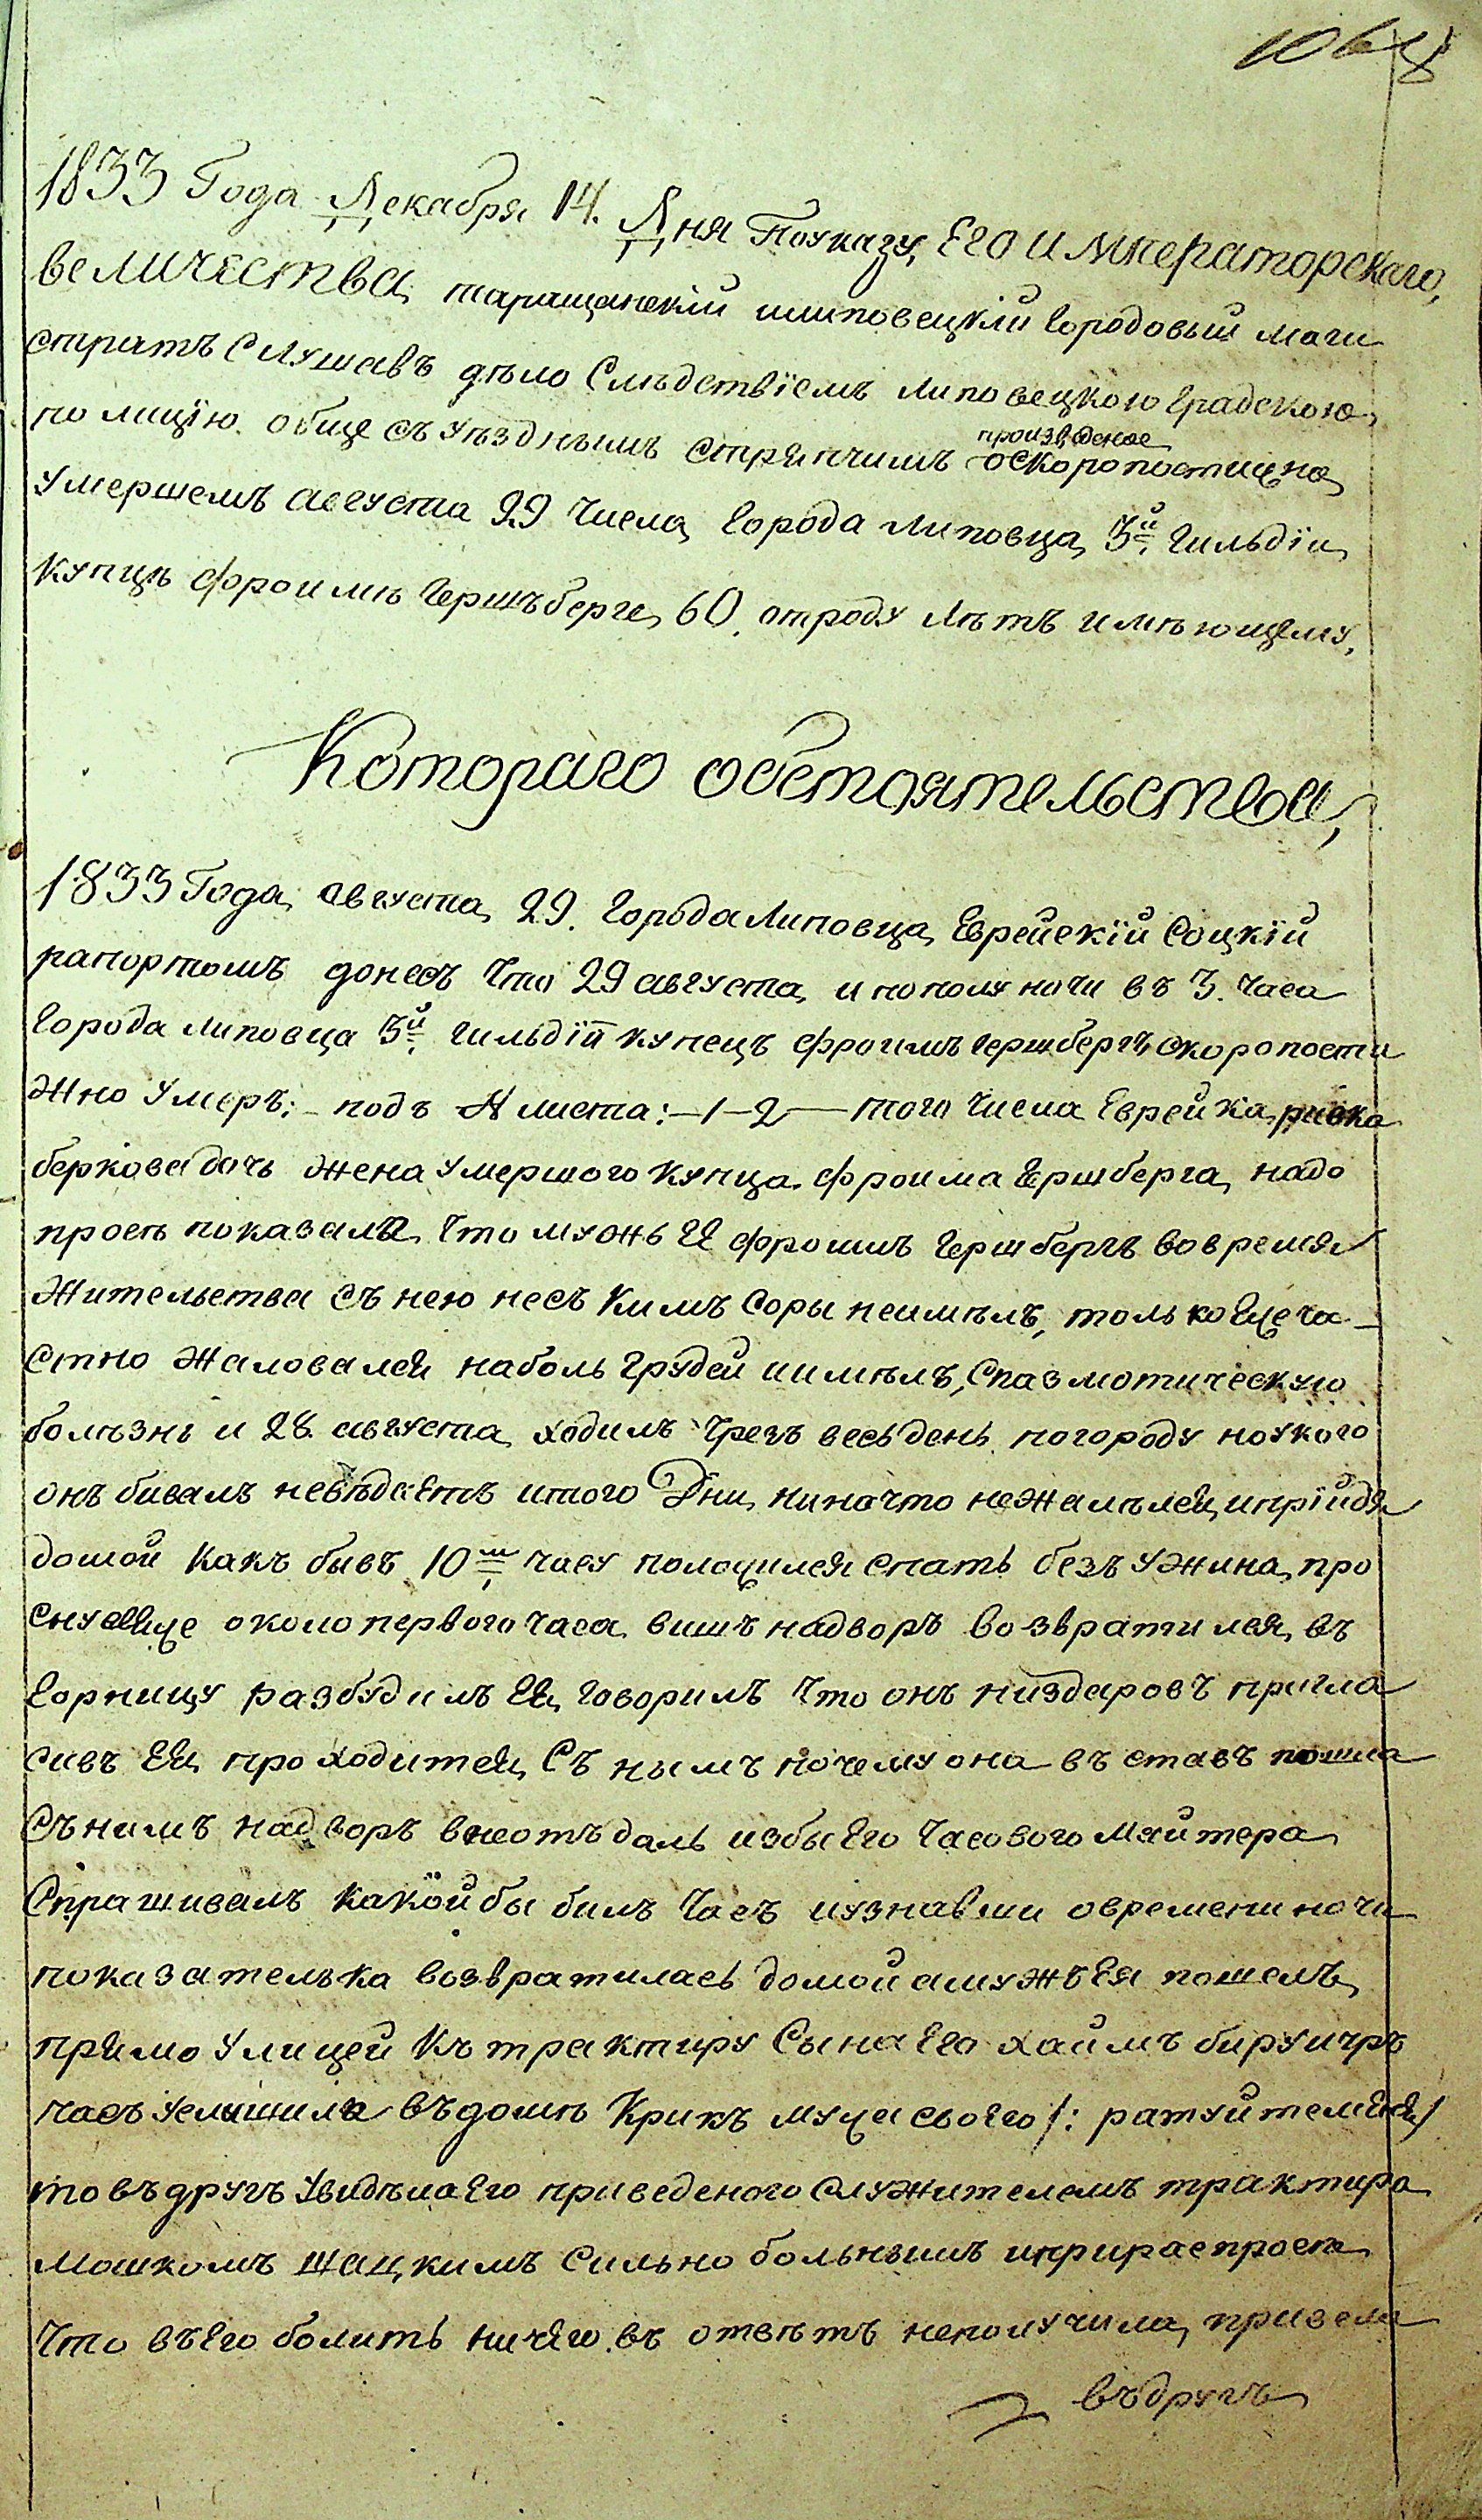 1833 Года Декабря 14. Дня Поуказу Его императорскаго,
величества таращанскїй илиповецкїй городовый маги
стратъ слушавъ дѣло слѣдствїемъ липовецкою градскою
полицїю обще съ уѣзднымъ стряпчимъ оскоропостижно
произведеное
умершемъ августа 29 числа города липовца 3й гильдїи
купцѣ фроимѣ гершъберге 60. отроду лѣтъ имѣющему.
Котораго обстоятельства,
1833 Года августа 29. города липовца Еврейскїй соцкїй
рапортомъ донесъ что 29 августа и пополуночи въ 3. часа
города липовца 3й гильдїи купецъ фроимъ гершбергъ скоропости
жно умеръ: – подъ № листа: – 1 – 2 – того числа Еврейка ривка
беркова дочь жена умершого купца фроима гершберга надо
просѣ показала что мужь Ея фроимъ гершбергъ вовремя
жительства съ нею несъ кимъ соры неимѣлъ, только Еще ча-
стно жаловался наболь грудей иимѣлъ спазмотическую
болѣзнь и 28 августа ходилъ чрезъ весь день погороду ноукого
онъ бивалъ невѣдаетъ итого дни ниначто нежалѣлся ипрїйдя
домой какъ бивъ 10м часу положился спать безъ ужина про
снувшись около первого часа вишъ надворъ возвратился въ
горницу разбудилъ Ея говорилъ что онъ низдаровъ пригла
сивъ Ея проходится съ нымъ почему она въставъ пошла
съ нимъ надворъ внеотъдаль избы Его часового майтера
спрашивалъ какой бы билъ часъ иузнавши овремени ночи
показателька возвратилась домой амужъ Ея пошелъ
прямо улицей къ трактиру сына Его хаимъ бируичрѣ
часъ услышила въдомѣ крикъ мужа своего /: ратуйтеменя /
товъдругъ увидѣла Его приведеного служителемъ трактира
мошкомъ шацкимъ сильно больнымъ иприраспросѣ
что въ Его болить ничего въ отвѣтъ неполучила, привела
въдругъ